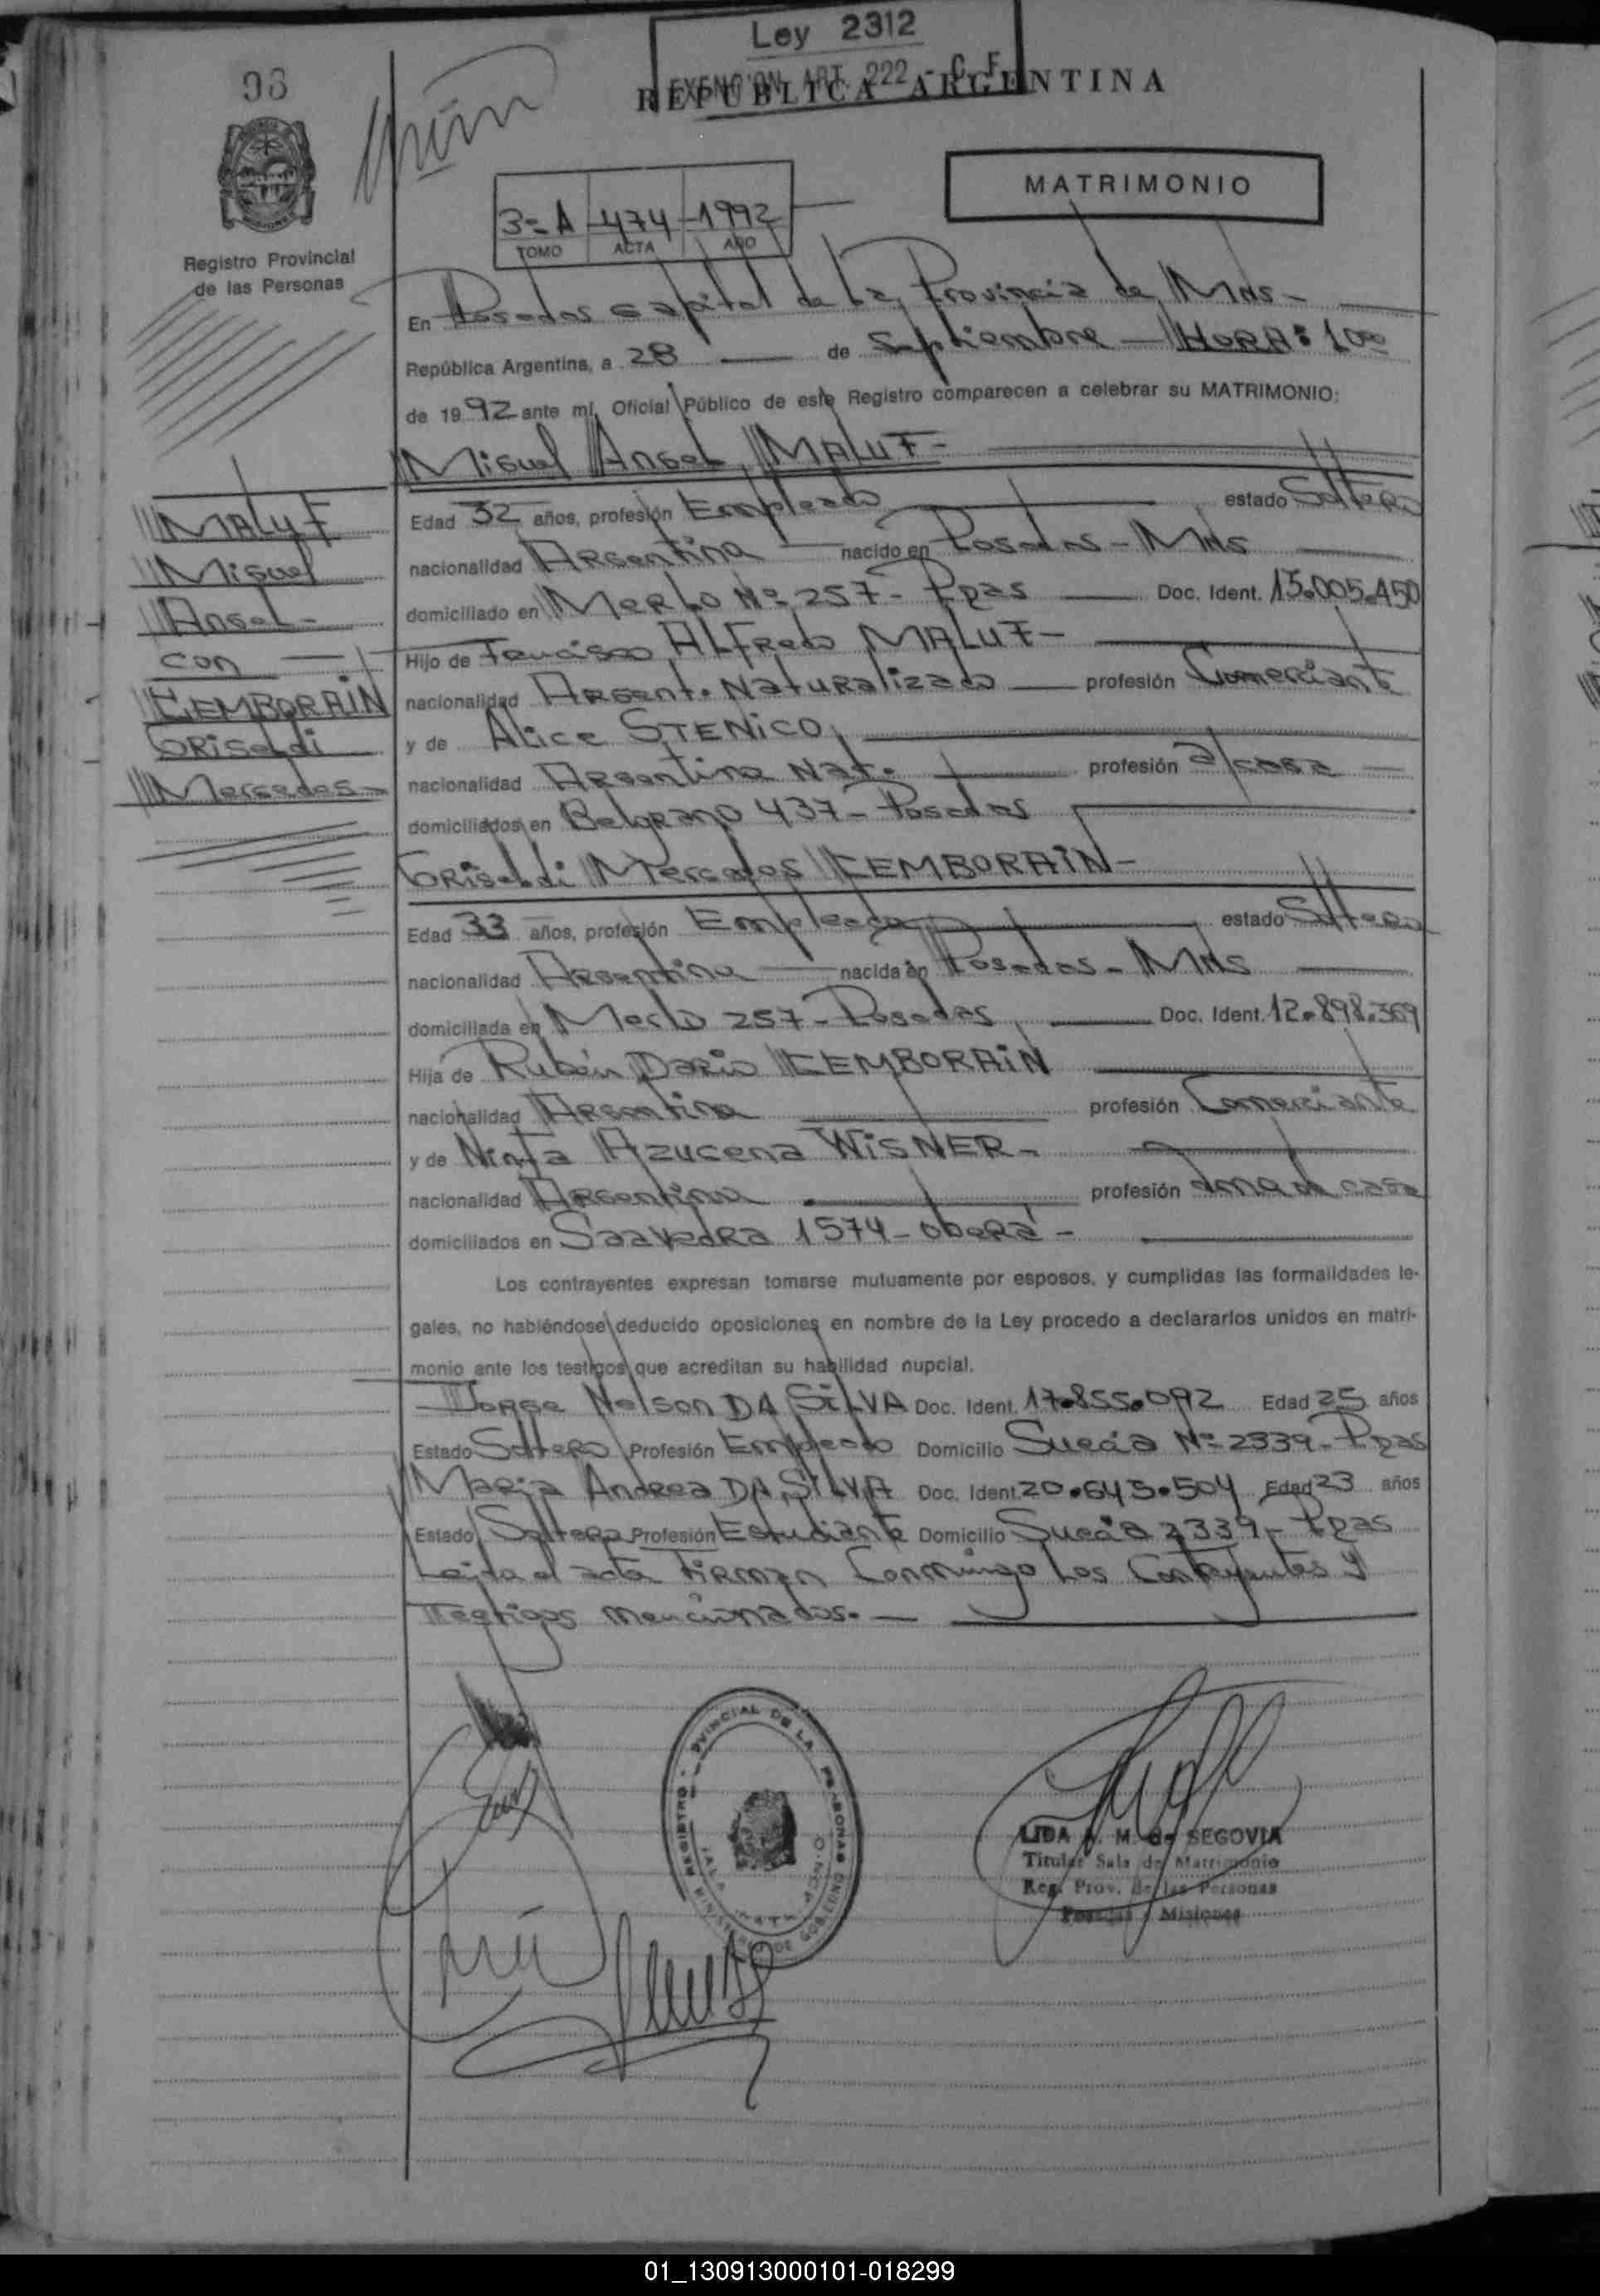 Ley 2312
EXENCION ART. 222 - C. F.
REPUBLICA ARGENTINA
93
Registro Provincial
de las Personas
MATRIMONIO
3=A 474 1992
TOMO ACTA AÑO
En Posadas Capital de La Provincia de Mns-
República Argentina, a 28 de Septiembre HORA: 10oo
de 1992 ante mí, Oficial Público de este Registro comparecen a celebrar su MATRIMONIO:
Miguel Angel MALUF-
MALUF
Miguel
Angel-
con
CEMBORAIN
Griseldi
Mercedes-
Edad 32 años, profesión Empleado estado Soltero
nacionalidad Argentina nacido en Posadas-Mns
domiciliado en Merlo Nº 257- Ppas Doc. Ident. 13.005.450
Hijo de Francisco ALFredo MALUF-
nacionalidad Argent. Naturalizado profesión Comerciante
y de Alice STENICO
nacionalidad Argentina Nat. profesión a/casa
domiciliados en Belgrano 437- Posadas
Griseldi Mercedes CEMBORAIN-
Edad 33 años, profesión Empleada estado Soltera
nacionalidad Argentina nacida en Posadas-Mns
domiciliada en Merlo 257-Posadas Doc. Ident. 12.898.369
Hija de Rubén Dario CEMBORAIN
nacionalidad Argentina profesión Comerciante
y de Ninfa Azucena WISNER-
nacionalidad Argentina profesión ama de casa
domiciliados en Saavedra 1574-Oberá-
Los contrayentes expresan tomarse mutuamente por esposos, y cumplidas las formalidades le-
gales, no habiéndose deducido oposiciones en nombre de la Ley procedo a declararlos unidos en matri-
monio ante los testigos que acreditan su habilidad nupcial.
Jorge Nelson DA SILVA Doc. Ident. 17.855.092 Edad 25 años
Estado Soltero Profesión Empleado Domicilio Suecia Nº 2339-Ppas
Maria Andrea DA SILVA Doc. Ident. 20.645.504 Edad 23 años
Estado Soltera Profesión Estudiante Domicilio Suecia 2339- Ppas
Leida el acta Firman Conmigo Los Contrayentes y
Testigos mencionados.-
REGISTRO PROVINCIAL DE LAS PERSONAS
MINISTERIO DE GOBIERNO
LIDA A. M. de SEGOVIA
Titular Sala de Matrimonio
Reg. Prov. de las Personas
Posadas - Misiones
01_130913000101-018299